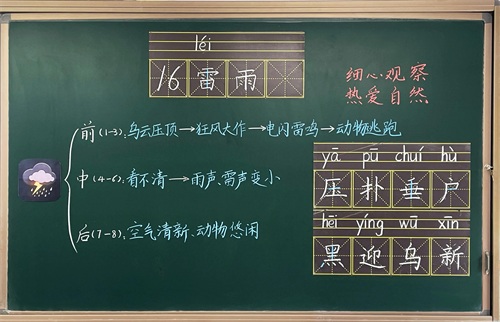 léi
16 雷雨
细心观察
热爱自然
前(1-3):乌云压顶→狂风大作→电闪雷鸣→动物逃跑
中(4-6):看不清→雨声、雷声变小
后(7-8):空气清新、动物悠闲
yā pū chuí hù
压扑垂户
hēi yíng wū xīn
黑迎乌新